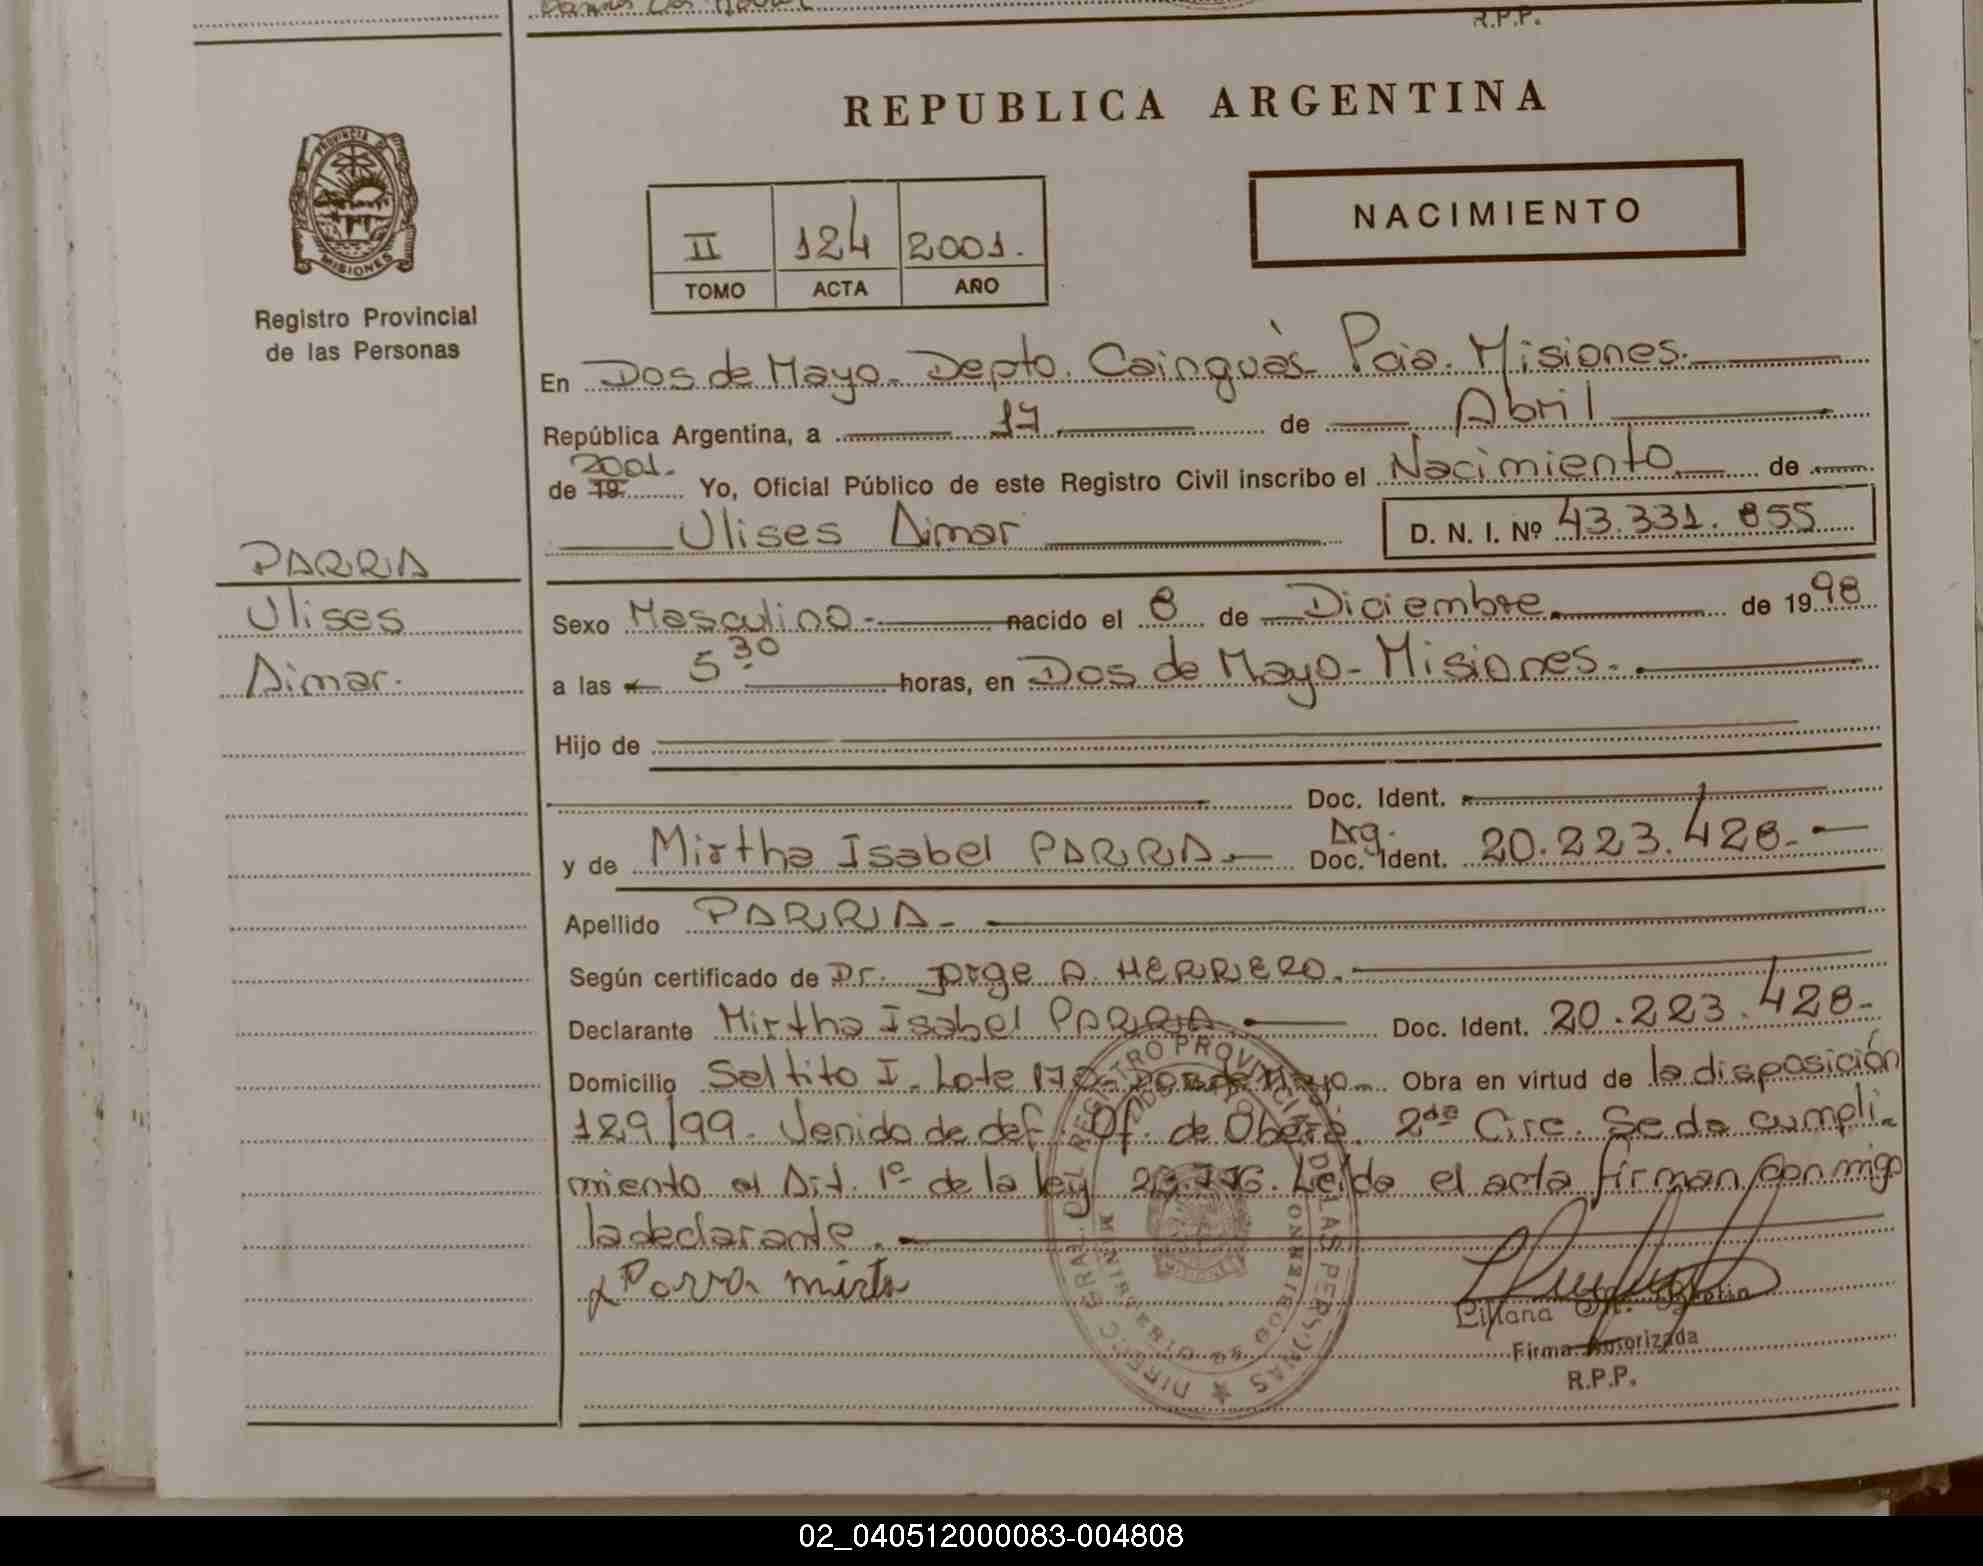 R.P.P.
REPUBLICA ARGENTINA
PROVINCIA DE
MISIONES
Registro Provincial
de las Personas
II 124 2001.
TOMO ACTA AÑO
NACIMIENTO
En Dos de Mayo - Depto. Cainguàs Pcia. Misiones.
República Argentina, a 17 de Abril
2001.
de 19 Yo, Oficial Público de este Registro Civil inscribo el Nacimiento de
Ulises Aimar D. N. I. Nº 43.331.855
PARRA
Ulises
Aimar.
Sexo Masculino - nacido el 8 de Diciembre. de 1998
a las 5 30 horas, en Dos de Mayo - Misiones.
Hijo de
Doc. Ident.
y de Mirtha Isabel PARRA Arg. Doc. Ident. 20.223.428.-
Apellido PARRA -
Según certificado de Dr. Jorge A. HERRERO.
Declarante Mirtha Isabel PARRA Doc. Ident. 20.223.428-
Domicilio Saltito I - Lote 170 - Dos de Mayo - Obra en virtud de la disposición
129/99. Venida de def. Of. de Oberá. 2da Circ. Se da cumpli-
miento al Art. 1º de la ley Leída el acta firman conmigo
la declarante.
x Parra mirta
Liliana
Firma Autorizada
R.P.P.
DIREC. GRAL. DEL REGISTRO PROVINCIAL DE LAS PERSONAS
02_040512000083-004808